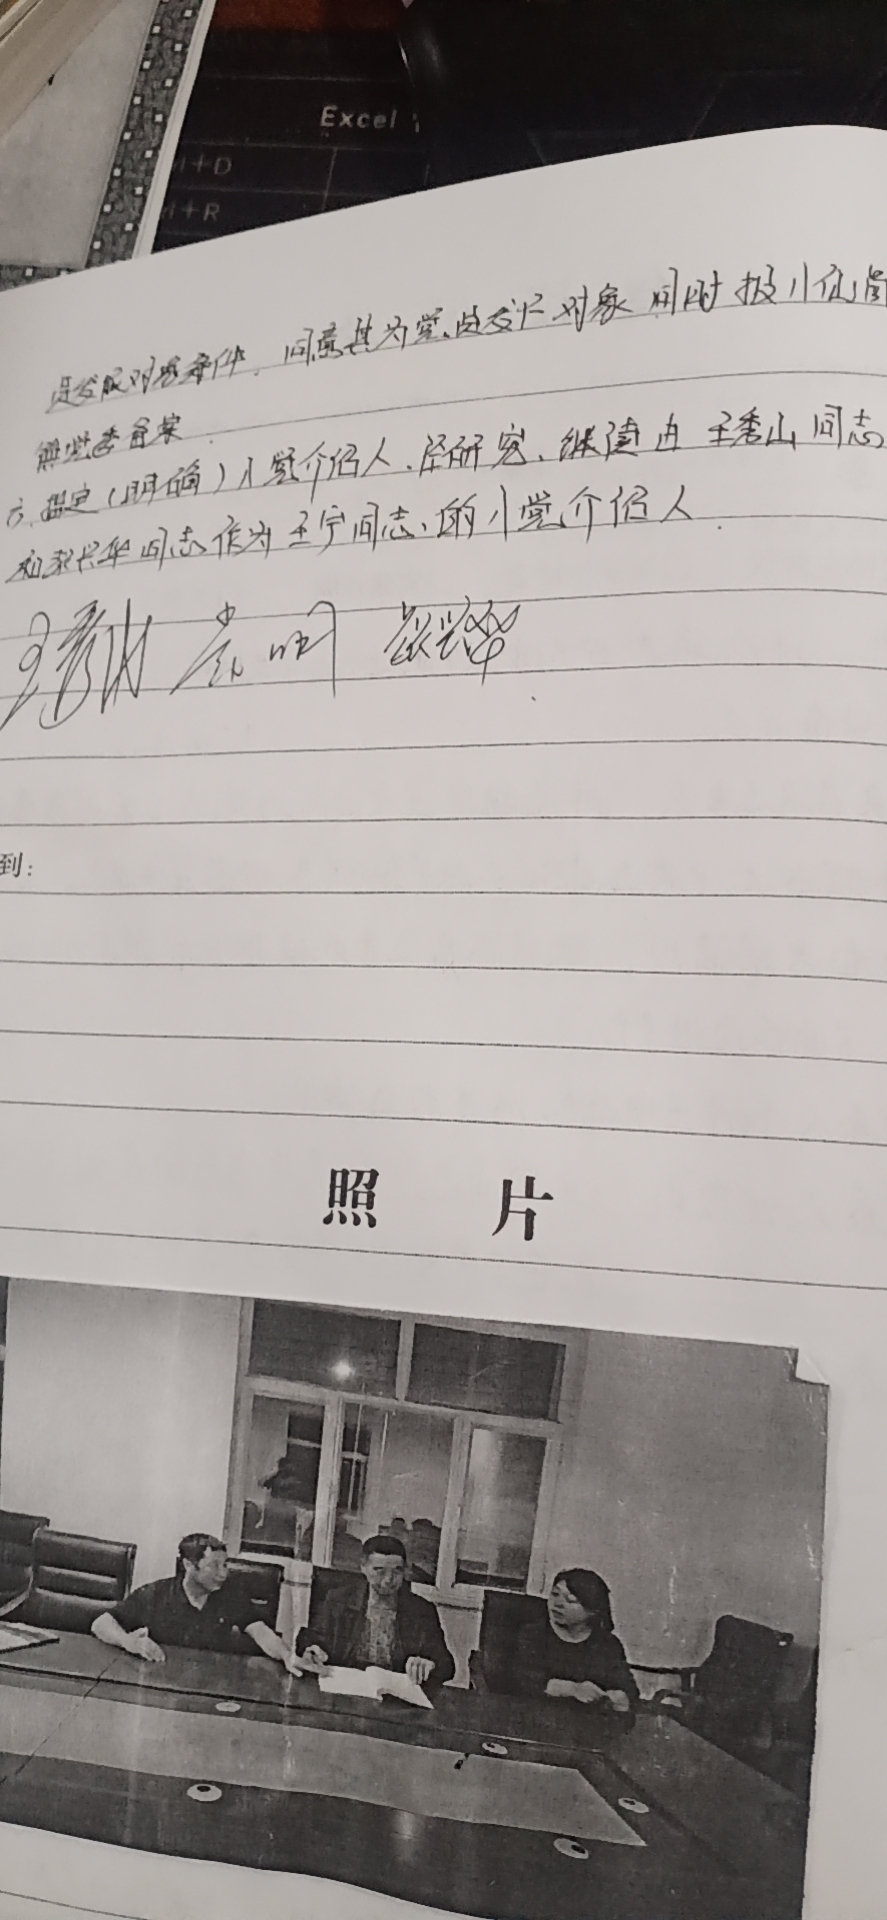 Excel
+D
+R
员发展对象条件。同意其为党员发展对象 同时报
备案
六、指定(明确)入党介绍人。经研究、继续由王秀山同志
和张兴华同志作为王宁同志的入党介绍人.
张兴华
到:
照 片